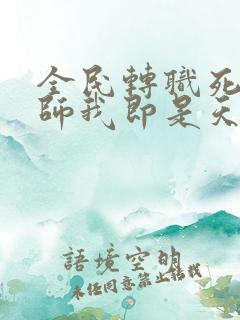 全民轉職死
師我即是天
語境空明
未經同意禁止轉載